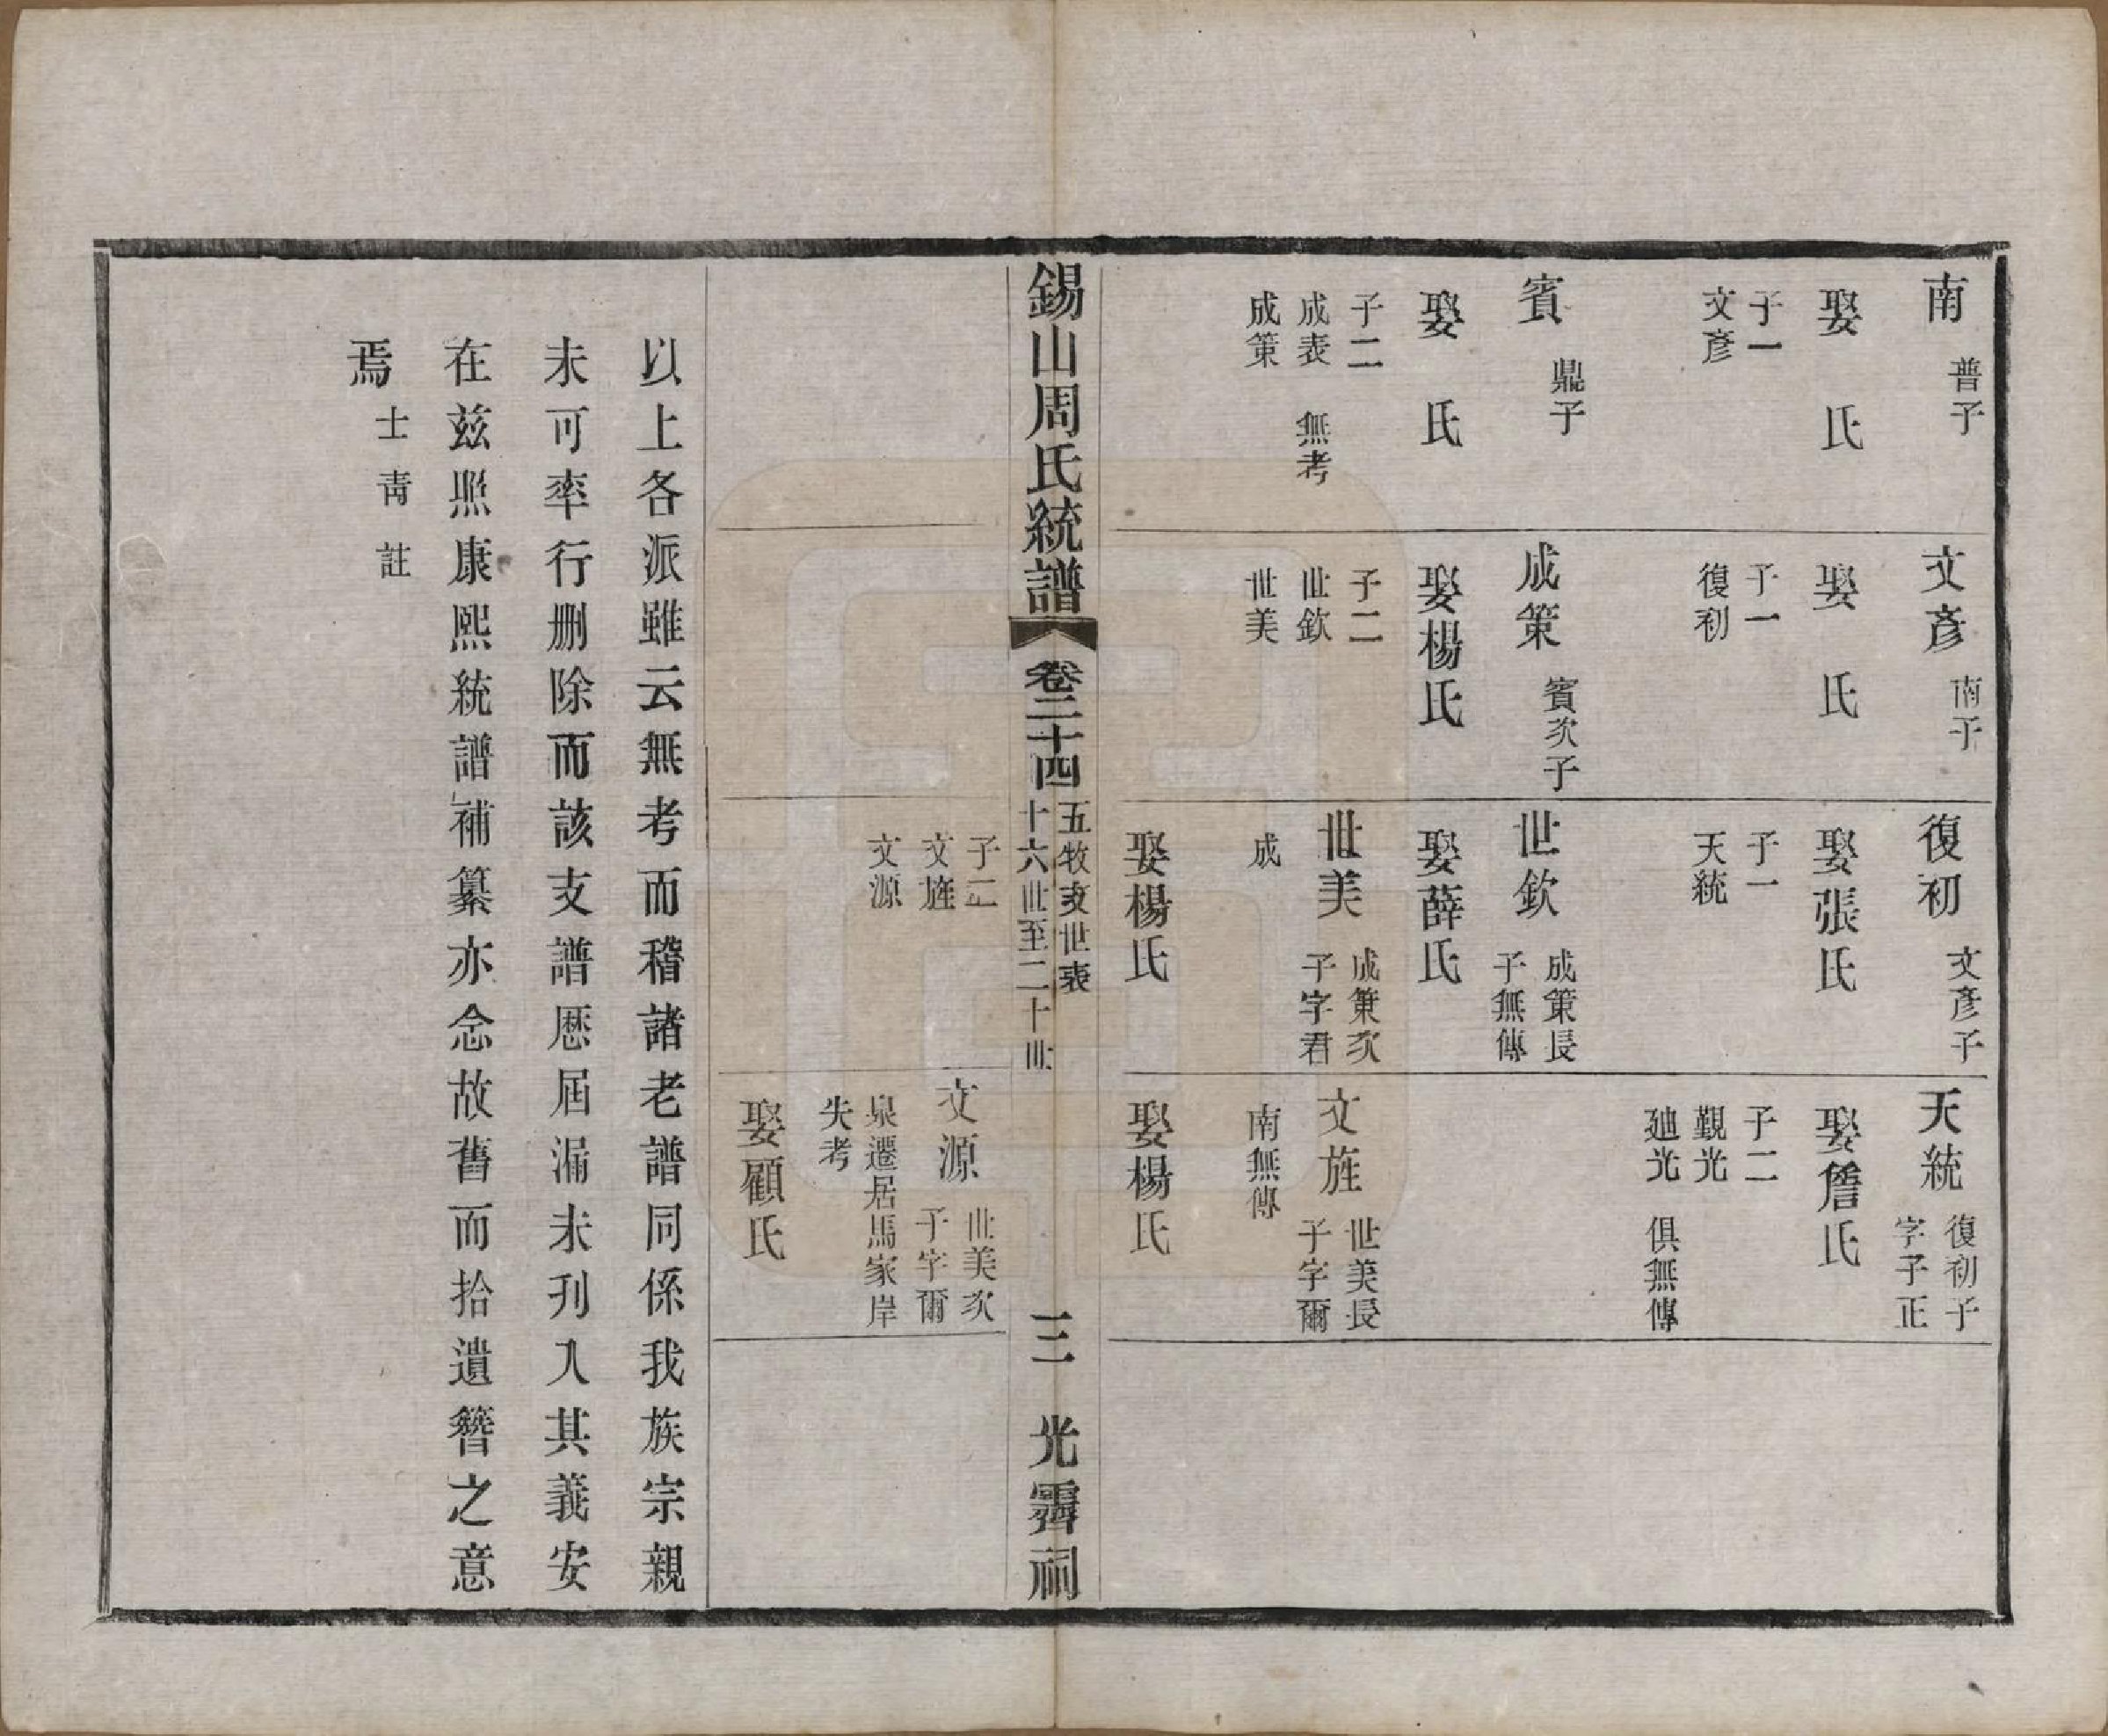 南 普子
娶 氏
子一
文彥
賓 鼎子
娶 氏
子二
成表 無考
成策
文彥 南子
娶 氏
子一
復初
成策 賓次子
娶楊氏
子二
世欽
世美
復初 文彥子
娶張氏
子一
天統
世欽 成策長
子無傳
娶薛氏
世美 成策次
子字君
成
娶楊氏
天統 復初子
字子正
娶詹氏
子二
覲光
廸光 俱無傳
文旌 世美長
子字爾
南無傳
娶楊氏
錫山周氏統譜 卷二十四 五牧支世表
十六世至二十世 三 光霽祠
子二
文旌
文源
文源 世美次
子字爾
泉遷居馬家岸
失考
娶顧氏
以上各派雖云無考而稽諸老譜同係我族宗親
未可率行刪除而該支譜歷屆漏未刋入其義安
在兹照康熙統譜補纂亦念故舊而拾遺簪之意
焉 士靑註